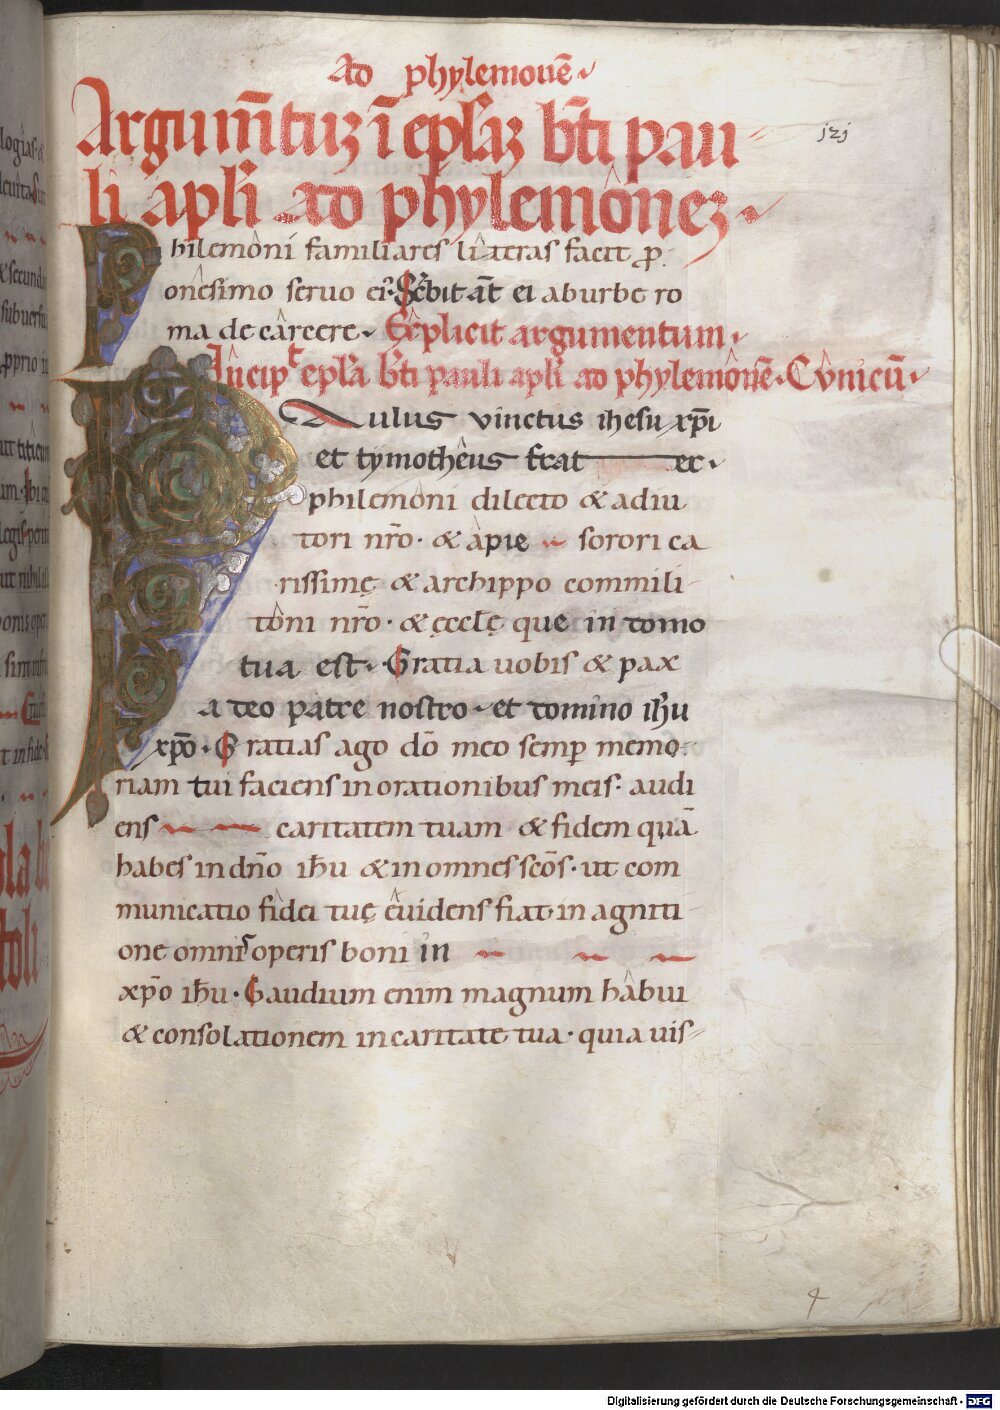 Ad phylemonē
Argum̄tuʒ ī ep̄laʒ b̄ti pau
li ap̄li ad phylemôneʒ.
121
Philemôni familiares litteras facit ꝓ
onêsimo seruo ei. Sc̄bit āt ei ab urbe ro
ma de cârcere. Explicit argumentum.
Incip̄t ep̄la b̄ti pauli ap̄li ad phylemônē. Cânicū.
PAulus vinctus ihesu xp̄i
et tymothêus frater.
philemôni dilecto & adiu
tori nr̄o. & apie sorori ca
rissimę & archippo commili
tôni nr̄o. & ęcclę que in domo
tua est. Gratia uobis & pax
a deo patre nostro. et domino ih̄u
xp̄o. Gratias ago dō meo semp̄ memo
riam tui faciens in orationibus meis. audi
ens caritatem tuam & fidem quā
habes in dn̄o ih̄u & in omnes sc̄os. ut com
municatio fidei tuę êuidens fiat in agniti
one omnis operis boni in
xp̄o ih̄u. Gaudium enim magnum hâbui
& consolationem in caritate tua. quia uis
Digitalisierung gefördert durch die Deutsche Forschungsgemeinschaft - DFG